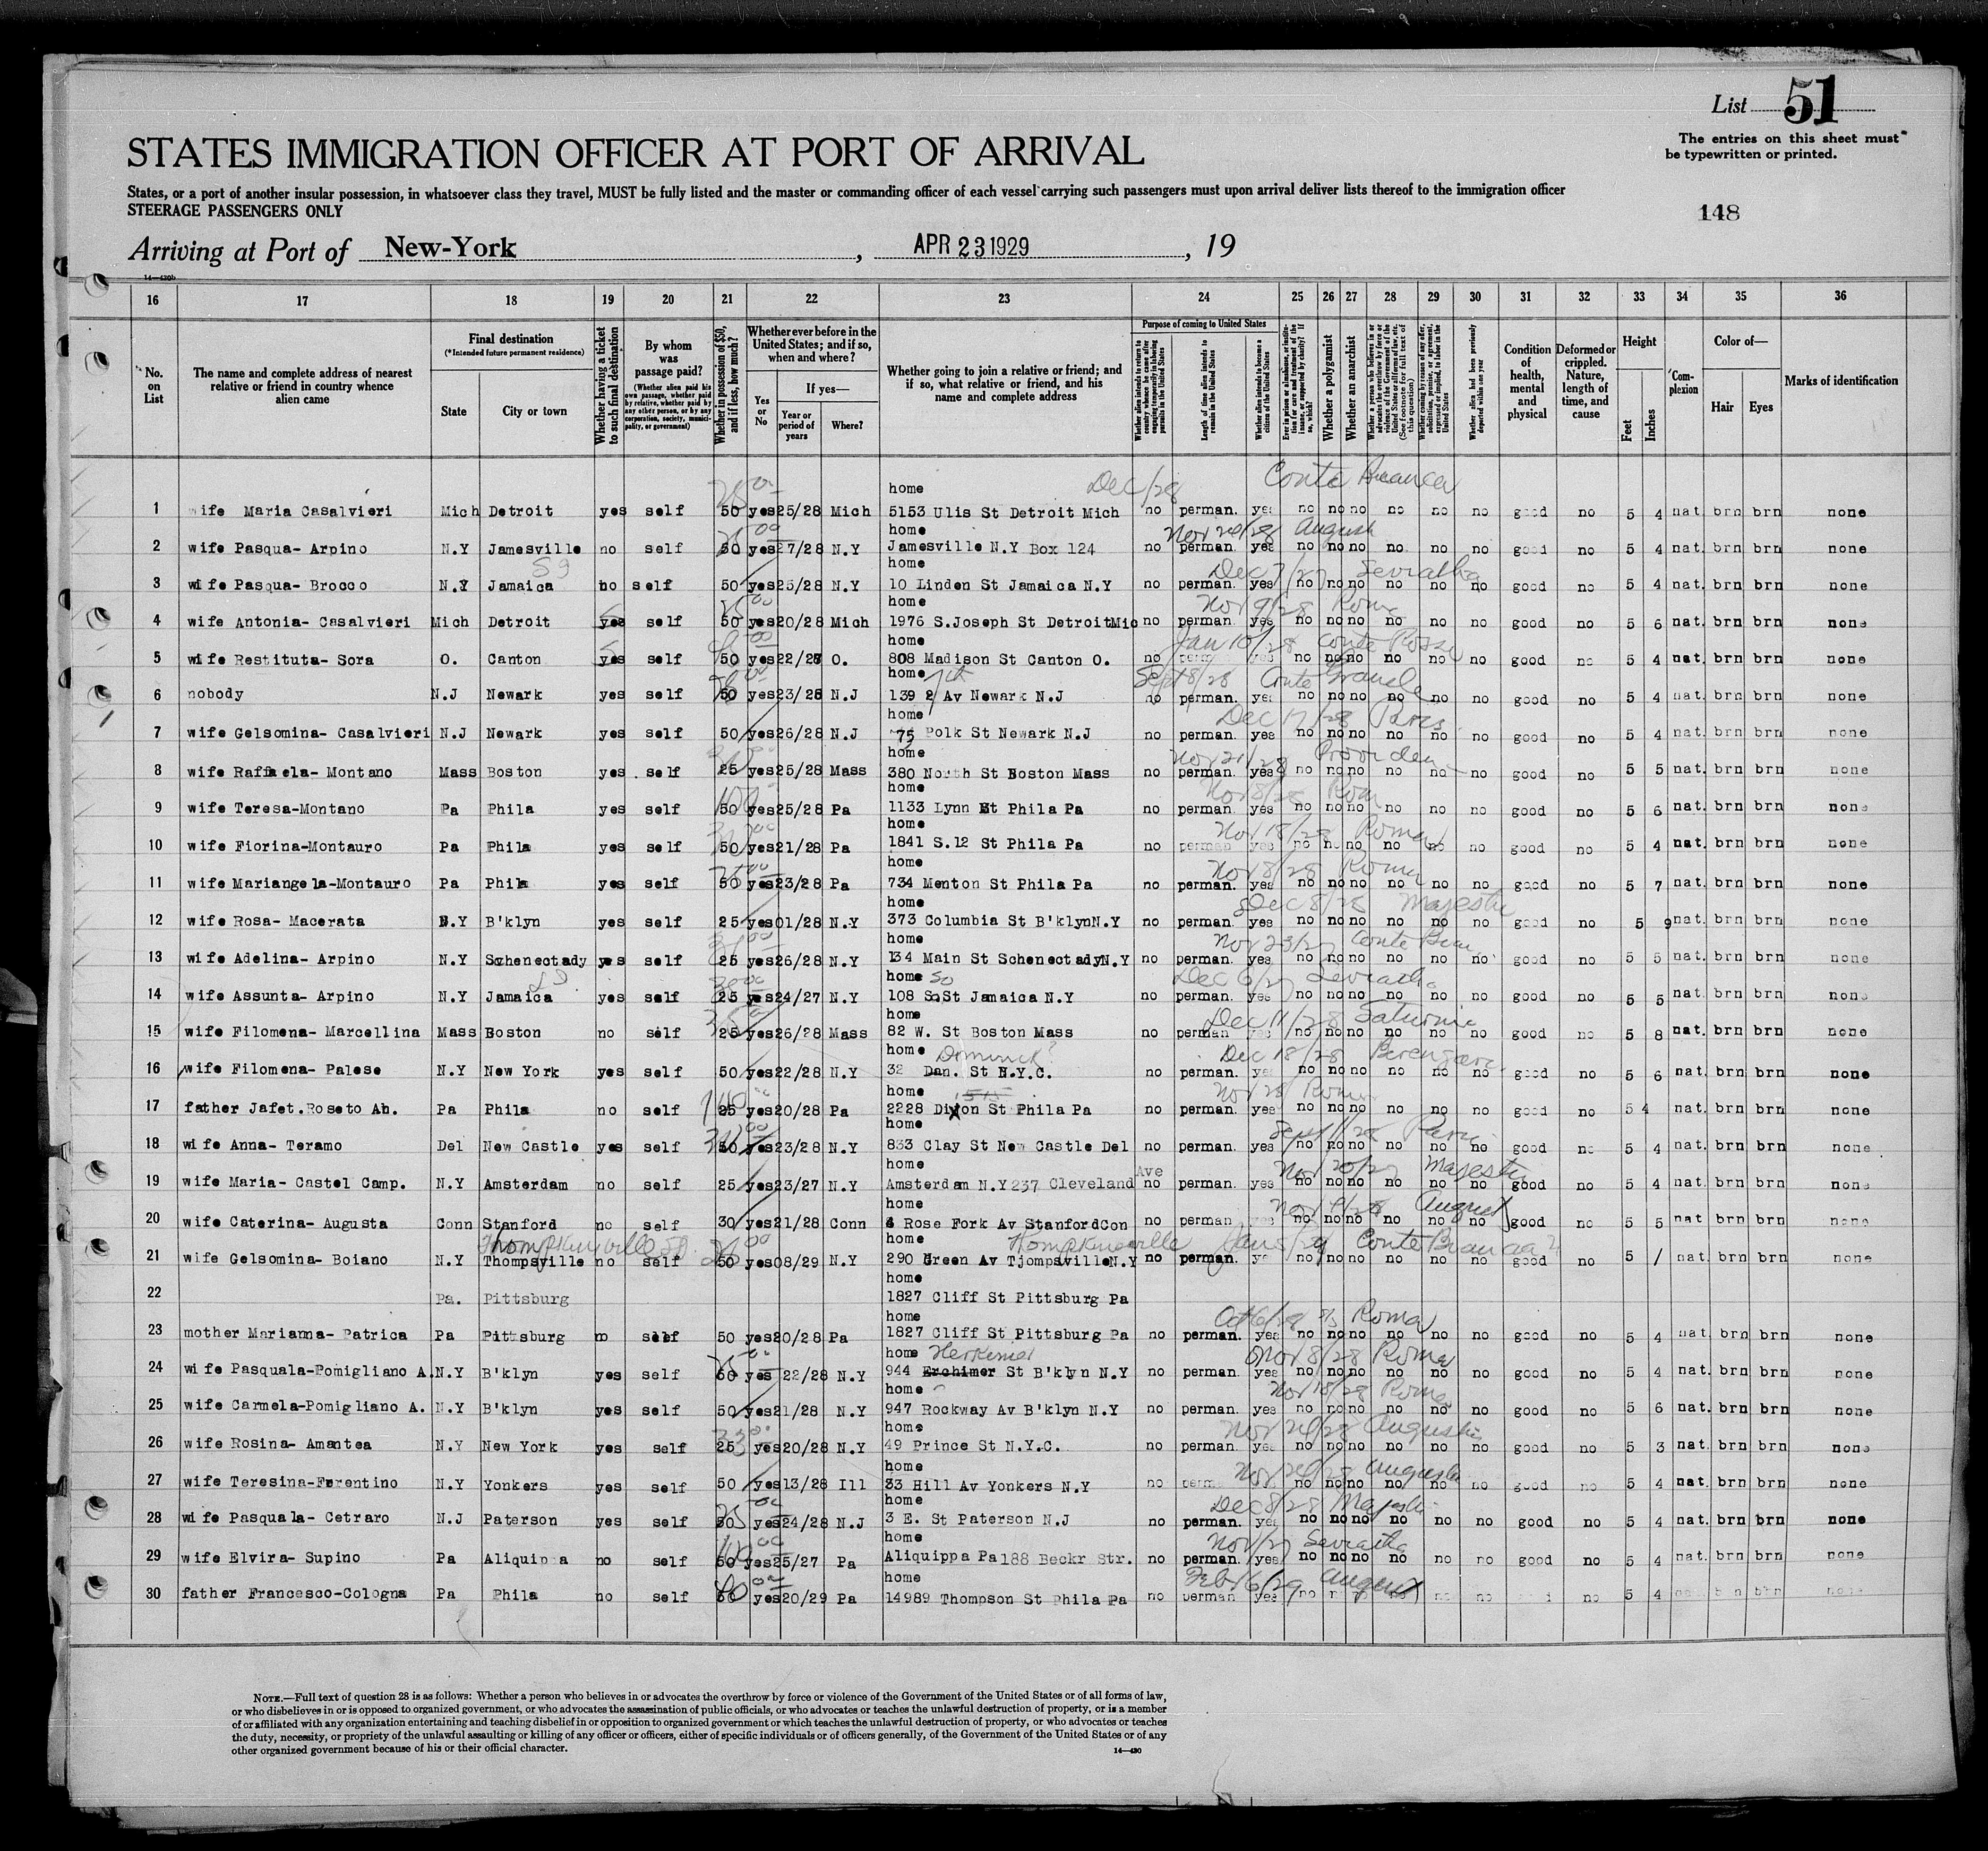 List 51
The entries on this sheet must
be typewritten or printed.
STATES IMMIGRATION OFFICER AT PORT OF ARRIVAL
States, or a port of another insular possession, in whatsoever class they travel, MUST be fully listed and the master or commanding officer of each vessel carrying such passengers must upon arrival deliver lists thereof to the immigration officer
STEERAGE PASSENGERS ONLY
148
Arriving at Port of New-York, APR 23 1929, 19
14-430b
16 17 18 19 20 21 22 23 24 25 26 27 28 29 30 31 32 33 34 35 36
No. on List
The name and complete address of nearest relative or friend in country whence alien came
Final destination
(*Intended future permanent residence)
State
City or town
Whether having a ticket to such final destination
By whom was passage paid?
(Whether alien paid his own passage, whether paid by relative, whether paid by any other person, or by any corporation, society, municipality, or government)
Whether in possession of $50, and if less, how much?
Whether ever before in the United States; and if so, when and where?
Yes or No
If yes—
Year or period of years
Where?
Whether going to join a relative or friend; and if so, what relative or friend, and his name and complete address
Purpose of coming to United States
Whether alien intends to return to country whence he came after engaging temporarily in laboring pursuits in the United States
Length of time alien intends to remain in the United States
Whether alien intends to become a citizen of the United States
Ever in prison or almshouse, or institution for care and treatment of the insane, or supported by charity? If so, which?
Whether a polygamist
Whether an anarchist
Whether a person who believes in or advocates the overthrow by force or violence of the Government of the United States or all forms of law, etc. (See footnote for full text of this question)
Whether coming by reason of any offer, solicitation, promise, or agreement, expressed or implied, to labor in the United States
Whether alien had been previously deported within one year
Condition of health, mental and physical
Deformed or crippled. Nature, length of time, and cause
Height
Feet
Inches
Complexion
Color of—
Hair
Eyes
Marks of identification
home Dec/28 Conte
1 wife Maria Casalvieri Mich Detroit yes self 50 yes 25/28 Mich 5153 Ulis St Detroit Mich no perman. yes no no no no no no good no 5 4 nat. brn brn none
home Nov 24/28 August
2 wife Pasqua- Arpino N.Y Jamesville no self 50 yes 27/28 N.Y Jamesville N.Y Box 124 no perman. yes no no no no no no good no 5 4 nat. brn brn none
home Dec 7/27
3 wife Pasqua- Brocco N.Y Jamaica no self 50 yes 25/28 N.Y 10 Linden St Jamaica N.Y no perman. yes no no no no no no good no 5 4 nat. brn brn none
home Nov 9/28 Roma
4 wife Antonia- Casalvieri Mich Detroit yes self 50 yes 20/28 Mich 1976 S.Joseph St Detroit Mic no perman. yes no no no no no no good no 5 6 nat. brn brn none
home Jan 10/28 Conte Rosso
5 wife Restituta- Sora O. Canton yes self 50 yes 22/28 O. 808 Madison St Canton O. no perm yes no no no no no no good no 5 4 nat. brn brn none
home 7th Sept 8/28 Conte Grande
6 nobody N.J Newark yes self 50 yes 23/28 N.J 139 2 Av Newark N.J no perman. yes no no no no no no good no 5 4 nat. brn brn none
home Dec 17/28 Paris
7 wife Gelsomina- Casalvieri N.J Newark yes self 50 yes 26/28 N.J 75 Polk St Newark N.J no perman. yes no no no no no no good no 5 4 nat. brn brn none
home Nov 21/28 Providen
8 wife Raffaela- Montano Mass Boston yes self 25 yes 25/28 Mass 380 North St Boston Mass no perman. yes no no no no no no good no 5 5 nat. brn brn none
home Nov 8/28 Rom
9 wife Teresa-Montano Pa Phila yes self 50 yes 25/28 Pa 1133 Lynn St Phila Pa no perman. yes no no no no no no good no 5 6 nat. brn brn none
home Nov 18/28 Roma
10 wife Fiorina-Montauro Pa Phila yes self 50 yes 21/28 Pa 1841 S.12 St Phila Pa no perman yes no no no no no no good no 5 4 nat. brn brn none
home Nov 8/28 Roma
11 wife Mariangela-Montauro Pa Phila yes self 50 yes 23/28 Pa 734 Menton St Phila Pa no perman. yes no no no no no no good no 5 7 nat. brn brn none
home Dec 8/28 Majestic
12 wife Rosa- Macerata N.Y B'klyn yes self 25 yes 01/28 N.Y 373 Columbia St B'klyn N.Y no perman. yes no no no no no no good no 5 9 nat. brn brn none
home Nov 23/27 Conte
13 wife Adelina- Arpino N.Y Schenectady yes self 25 yes 26/28 N.Y 134 Main St Schenectady N.Y no perman. yes no no no no no no good no 5 5 nat. brn brn none
home So Dec 6/27
14 wife Assunta- Arpino N.Y Jamaica yes self 25 yes 24/27 N.Y 108 So St Jamaica N.Y no perman. yes no no no no no no good no 5 5 nat. brn brn none
home Dec 11/28 Saturnia
15 wife Filomena- Marcellina Mass Boston no self 25 yes 26/28 Mass 82 W. St Boston Mass no perman yes no no no no no no good no 5 8 nat. brn brn none
home Dominick? Dec 18/28
16 wife Filomena- Palese N.Y New York yes self 50 yes 22/28 N.Y 32 Dan. St N.Y.C. no perman. yes no no no no no no good no 5 6 nat. brn brn none
home 1515 Nov 28 Roma
17 father Jafet.Roseto Ab. Pa Phila no self 25 yes 20/28 Pa 2228 Dixon St Phila Pa no perman. yes no no no no no no good no 5 4 nat. brn brn none
home Sept 11/28
18 wife Anna- Teramo Del New Castle yes self 50 yes 23/28 N.Y 833 Clay St New Castle Del no perman. yes no no no no no no good no 5 4 nat. brn brn none
home Ave Nov 20/27 Majestic
19 wife Maria- Castel Camp. N.Y Amsterdam no self 25 yes 23/27 N.Y Amsterdam N.Y 237 Cleveland no perman. yes no no no no no no good no 5 4 nat. brn brn none
home August
20 wife Caterina- Augusta Conn Stanford no self 30 yes 21/28 Conn 4 Rose Fork Av Stanford Con no perman yes no no no no no no good no 5 5 nat brn brn none
Thompkinsville home Thompkinsville Jan 5/29 Conte
21 wife Gelsomina- Boiano N.Y Thompsville no self 50 yes 08/29 N.Y 290 Green Av Tjompsville N.Y no perman. ye no no no no no no good no 5 / nat. brn brn none
home
22 Pa. Pittsburg 1827 Cliff St Pittsburg Pa
home Oct 6/28 Roma
23 mother Marianna- Patrica Pa Pittsburg no self 50 yes 20/28 Pa 1827 Cliff St Pittsburg Pa no perman. yes no no no no no no good no 5 4 nat. brn brn none
home Herkimer Nov 8/28 Roma
24 wife Pasquala-Pomigliano A. N.Y B'klyn yes self 50 yes 22/28 N.Y 944 Erchimer St B'klyn N.Y no perman. yes no no no no no no good no 5 4 nat. brn brn none
home Nov 18/28 Roma
25 wife Carmela-Pomigliano A. N.Y B'klyn yes self 50 yes 21/28 N.Y 947 Rockway Av B'klyn N.Y no perman. yes no no no no no no good no 5 6 nat. brn brn none
home Nov 24/28 Augustus
26 wife Rosina- Amantea N.Y New York yes self 25 yes 20/28 N.Y 49 Prince St N.Y.C. no perman. yes no no no no no no good no 5 3 nat. brn brn none
home Nov 24/28 Augustu
27 wife Teresina-Ferentino N.Y Yonkers yes self 50 yes 13/28 Ill 33 Hill Av Yonkers N.Y no perm yes no no no no no no good no 5 4 nat. brn brn none
home Dec 8/28 Majesti
28 wife Pasquala- Cetraro N.J Paterson yes self 50 yes 24/28 N.J 3 E. St Paterson N.J no perman. yes no no no no no no good no 5 4 nat. brn brn none
home Nov 1/27
29 wife Elvira- Supino Pa Aliquippa no self 50 yes 25/27 Pa Aliquippa Pa 188 Beckr Str. no perman. yes no no no no no no good no 5 4 nat. brn brn none
home Feb 16/29 August
30 father Francesco-Cologna Pa Phila no self 50 yes 20/29 Pa 14989 Thompson St Phila Pa no perman yes no no no no no no no 5 4 brn brn none
NOTE.—Full text of question 28 is as follows: Whether a person who believes in or advocates the overthrow by force or violence of the Government of the United States or of all forms of law,
or who disbelieves in or is opposed to organized government, or who advocates the assassination of public officials, or who advocates or teaches the unlawful destruction of property, or is a member
of or affiliated with any organization entertaining and teaching disbelief in or opposition to organized government or which teaches the unlawful destruction of property, or who advocates or teaches
the duty, necessity, or propriety of the unlawful assaulting or killing of any officer or officers, either of specific individuals or of officers generally, of the Government of the United States or of any
other organized government because of his or their official character.
14-430